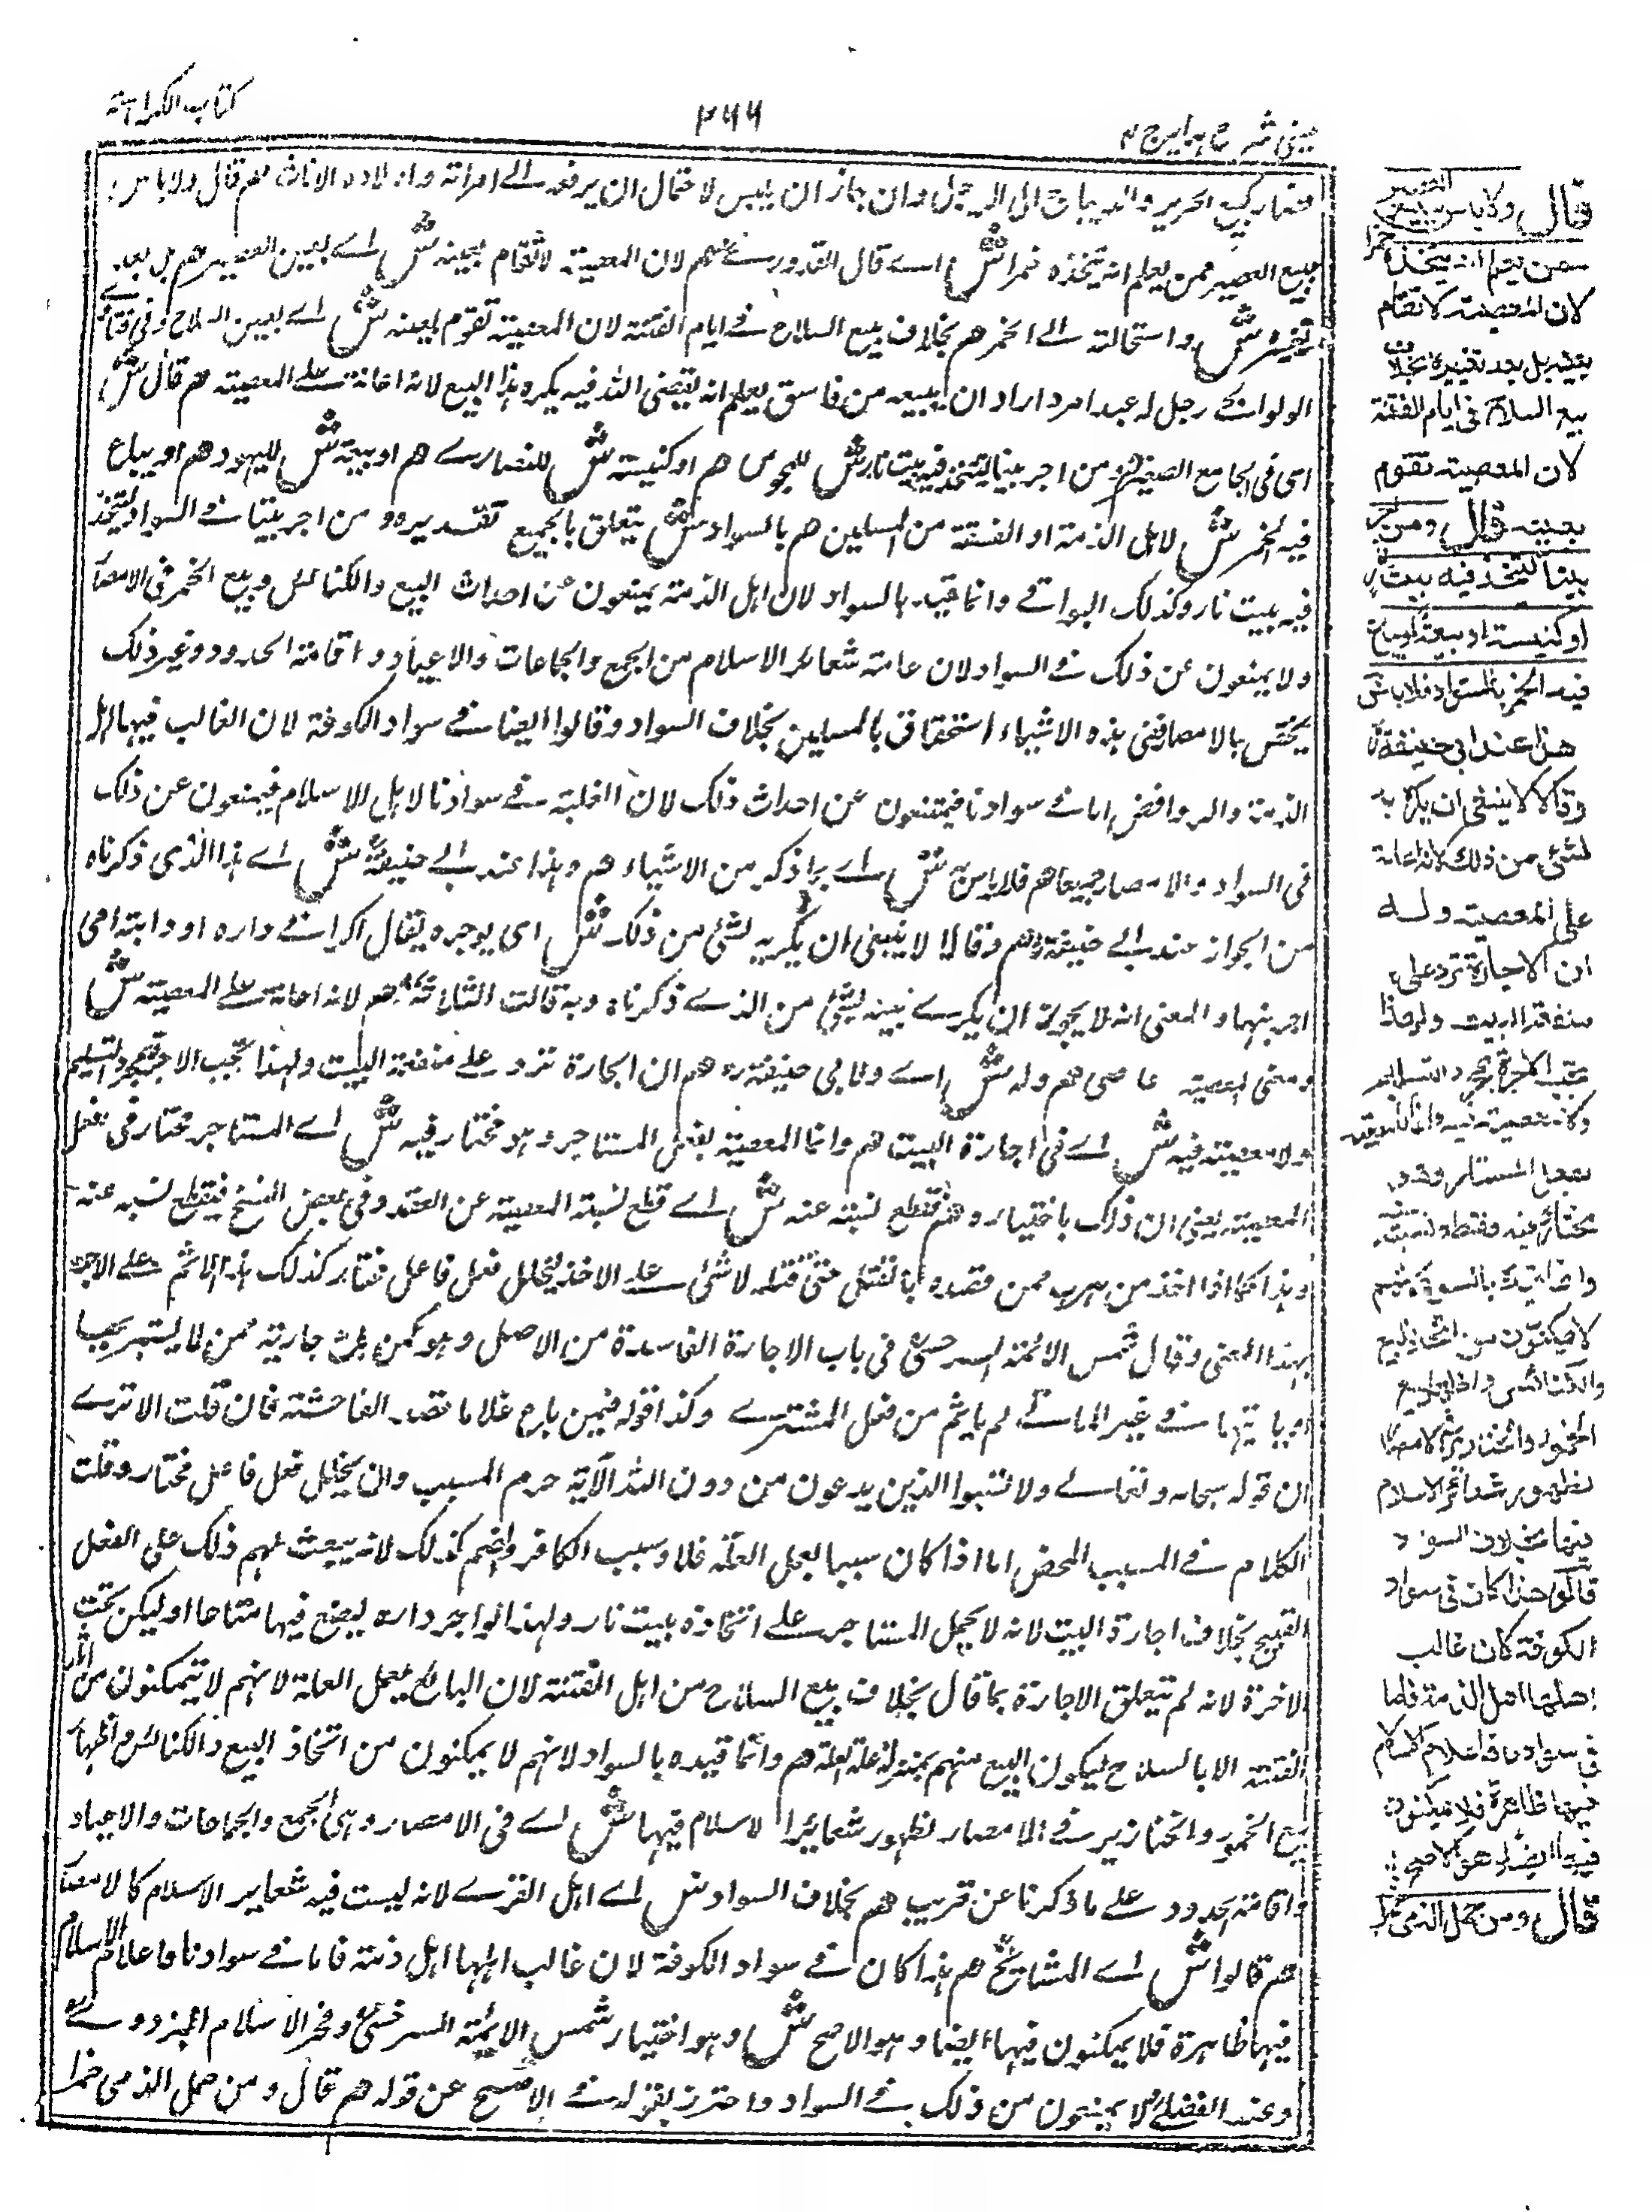 كتاب الكراهية
٢٦٦
عيني شرح هدايه ج ٤
فصار كبيع الحرير والديباج الى الرجل وان جاز ان يلبس لاحتمال ان يرفعه الے امراته واولاده الاناث هم قال ولا باس
ببيع العصير ممن يعلم انه يتخذه خمرا ش اے قال القدورے هم لان المعصية لا تقام بعينه ش اے بعين العصير هم بل بعد
تغيره ش واستحالته الے الخمر هم بخلاف بيع السلاح فے ايام الفتنة لان المعصية تقوم بعينه ش اے بعين السلاح وفي فتاوے
الولوالجے رجل له عبد امرد اراد ان يبيعه من فاسق يعلم انه يعصى الله فيه يكره هذا البيع لانه اعانة علے المعصية هم قال ش
اى فى الجامع الصغير هم ومن اجر بيتا ليتخذ فيه بيت نار ش للمجوس هم او كنيسة ش للنصارے هم او بيعة ش لليهود هم او يباع
فيه الخمر ش لاهل الذمة او الفسقة من المسلمين هم بالسواد ش يتعلق بالجميع تقديره ومن اجر بيتا فے السواد ليتخذ
فيه بيت نار وكذلك البواقے وانما قيد بالسواد لان اهل الذمة يمنعون عن احداث البيع والكنائس وبيع الخمر فى الامصار
ولا يمنعون عن ذلك فے السواد لان عامة شعائر الاسلام من الجمع والجماعات والاعياد واقامة الحدود وغير ذلك
يختص بالامصار ففى هذه الاشياء استخفاف بالمسلمين بخلاف السواد وقالوا ايضا فے سواد الكوفة لان الغالب فيها اهل
الذمة والروافض اما فے سوادنا فيمنعون عن احداث ذلك لان الغلبة فے سوادنا لاهل الاسلام فيمنعون عن ذلك
فى السواد والامصار جميعا هم فلا باس به ش اے بما ذكر من الاشياء هم وهذا عند ابے حنيفة ش اے هذا الذى ذكرناه
من الجواز عند ابے حنيفة هم وقالا لا ينبغى ان يكريه لشئ من ذلك ش اى يوجره يقال اكرانے داره او دابته اى
اجرنيها والمعنى انه لا يجوز له ان يكرے بيته لشئ من الذے ذكرناه وبه قالت الثلاثة هم لانه اعانة علے المعصية ش
ومعنى المعصية عاصى هم وله ش اے ولابى حنيفة هم ان الاجارة ترد علے منفعة البيت ولهذا تجب الاجرة بمجرد التسليم
ولا معصية فيه ش اے فى اجارة البيت هم وانما المعصية بفعل المستاجر وهو مختار فيه ش اے المستاجر مختار فى فعل
المعصية يعنى ان ذلك باختياره هم فقطع نسبته عنه ش اے قطع نسبة المعصية عن العقد وفى بعض النسخ فيقطع نسبه عنه
وهذا كما اذا اخذ من هرب ممن قصده بالقتل حتى قتله لا شئ علے الاخذ لتخلل فعل فاعل مختار كذلك هذا الاثم علے الاجر
بهذا المعنى وقال شمس الائمة السرخسى فى باب الاجارة الفاسدة من الاصل وهو كمن باع جارية ممن لا يستبريها
او ياتيها فے غير الماتے لم ياثم من فعل المشترے وكذا قوله فيمن باع غلاما قصد الفاحشة فان قلت الا ترے
ان قوله سبحانه وتعالے ولا تسبوا الذين يدعون من دون الله الآية حرم المسبب وان تخلل فعل فاعل مختار وقلت
الكلام فے المسبب المحض اما اذا كان سببا يعمل العلة فلا وسبب الكافر والصنم كذلك لانه يبعث لهم ذلك على الفعل
القبيح بخلاف اجارة البيت لانه لا يحمل المستاجر علے اتخاذه بيت نار ولهذا لو اجر داره ليضع فيها متاعا او ليكن تحت
الاخرة لانه لم تتعلق الاجارة بما قال بخلاف بيع السلاح من اهل الفتنة لان البائع يعمل العلة لانهم لا يتمكنون من اثارة
الفتنة الا بالسلاح ليكون البيع منهم بمنزلة علة العلة هم وانما قيده بالسواد لانهم لا يمكنون من اتخاذ البيع والكنائس واظهار
بيع الخمور والخنازير فے الامصار لظهور شعائر الاسلام فيها ش اے فى الامصار وهى الجمع والجماعات والاعياد
واقامة الحدود علے ما ذكرنا عن قريب هم بخلاف السواد ش اے اهل القرے لانه ليست فيه شعاير الاسلام كالامصار
هم قالوا ش اے المشايخ هم هذا كان فے سواد الكوفة لان غالب اهلها اهل ذمة فاما فے سوادنا فاعلام الاسلام
فيها ظاهرة فلا يمكنون فيها ايضا وهو الاصح ش وهو اختيار شمس الايمة السرخسى وفخر الاسلام البزدوے
وعند الفضلے لا يمنعون من ذلك فے السواد واحترز بقوله فے الاصح عن قوله هم قال ومن حمل الذمى خمرا
قال ولا باس ببيع العصير
ممن يعلم انه يتخذه خمرا
لان المعصية لا تقام
بعينه بل بعد تغييره بخلاف
بيع السلاح فى ايام الفتنة
لان المعصية تقوم
بعينه قال ومن اجر
بيتا ليتخذ فيه بيت نار
او كنيسة او بيعة او يباع
فيه الخمر بالسواد فلا باس
هذا عند ابى حنيفة
وقالا لا ينبغى ان يكريه
لشئ من ذلك لانه اعانة
على المعصية وله
ان الاجارة ترد على
منفعة البيت ولهذا
تجب الاجرة بمجرد التسليم
ولا معصية فيه وانما المعصية
بفعل المستاجر وهو
مختار فيه فقطع نسبته عنه
وانما قيده بالسواد لانهم
لا يمكنون من اتخاذ البيع
والكنائس واظهار بيع
الخمور والخنازير فى الامصار
لظهور شعائر الاسلام
فيها بخلاف السواد
قالوا هذا كان فى سواد
الكوفة لان غالب
اهلها اهل الذمة فاما
فى سوادنا فاعلام الاسلام
فيها ظاهرة فلا يمكنون
فيها ايضا وهو الاصح
قال ومن حمل الذمى خمرا